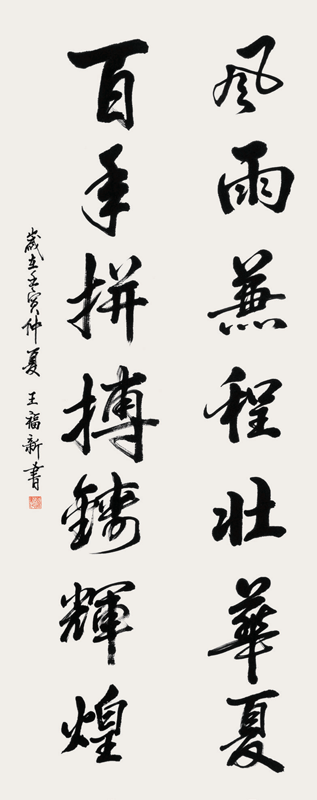 風雨兼程壯華夏
百年拼搏鑄輝煌
歲在壬寅仲夏 王福新書